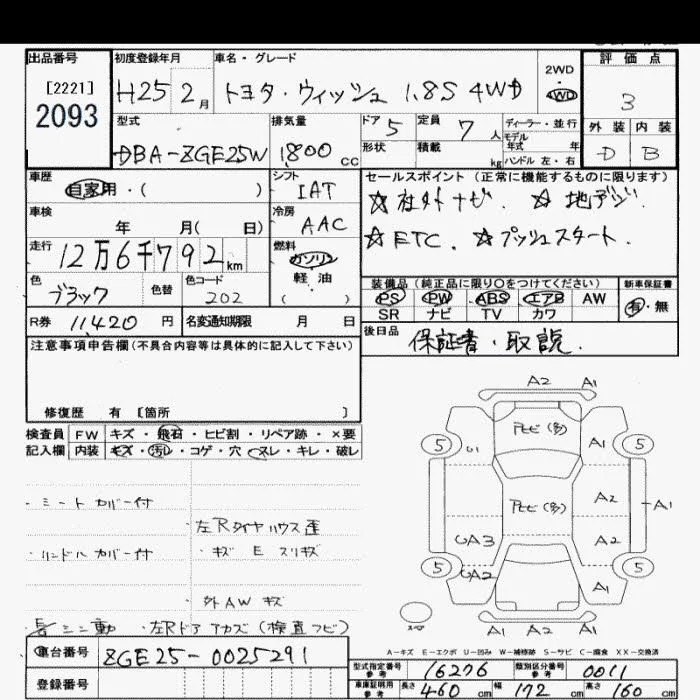 出品番号
[2221]
2093
初度登録年月
H25 2月
車名・グレード
トヨタ・ウィッシュ 1.8S 4WD
2WD
4WD
評価点
3
外装 内装
D B
型式
DBA-ZGE25W
排気量
1800 CC
ドア 5
形状
定員 7人
積載 kg
ディーラー・並行
モデル年式 年
ハンドル 左・右
車歴
自家用・( )
シフト
IAT
車検
年 月( 日)
冷房
AAC
走行
12万6千792km
燃料
ガソリン
軽・油
( )
色
ブラック
色替
色コード
202
R券 11,420 円
名変通知期限 月 日
セールスポイント(正常に機能するものに限ります)
☆社外ナビ ☆地デジ.
☆ETC. ☆プッシュスタート.
装備品(純正品に限り○をつけてください)
PS PW ABS エアB AW
SR ナビ TV カワ
新車保証書
有・無
後日品
保証書・取説.
注意事項申告欄(不具合内容等は具体的に記入して下さい)
修復歴 有 [箇所 ]
検査員記入欄
FW キズ・飛石・ヒビ割・リペア跡・×要
内装 キズ・汚レ・コゲ・穴・スレ・キレ・破レ
・シートカバー付
・左Rタイヤハウス歪
・ハンドルカバー付
・キズ E スリキズ
・外AWキズ
・左Rドア
車台番号
ZGE25-0025291
登録番号
A2 A1
アモビ(多)
5 G1 A1 5
アモビ(多)
A2 A1
UA3 A2
5 UA2 A1 5
A1 A2 A1
A-キズ E-エクボ U-凹み W-補修跡 S-サビ C-腐食 XX-交換済
型式指定番号 参考 16276
類別区分番号 参考 0011
車庫証明用 参考 長さ 460 cm 幅 172 cm 高さ 160 cm